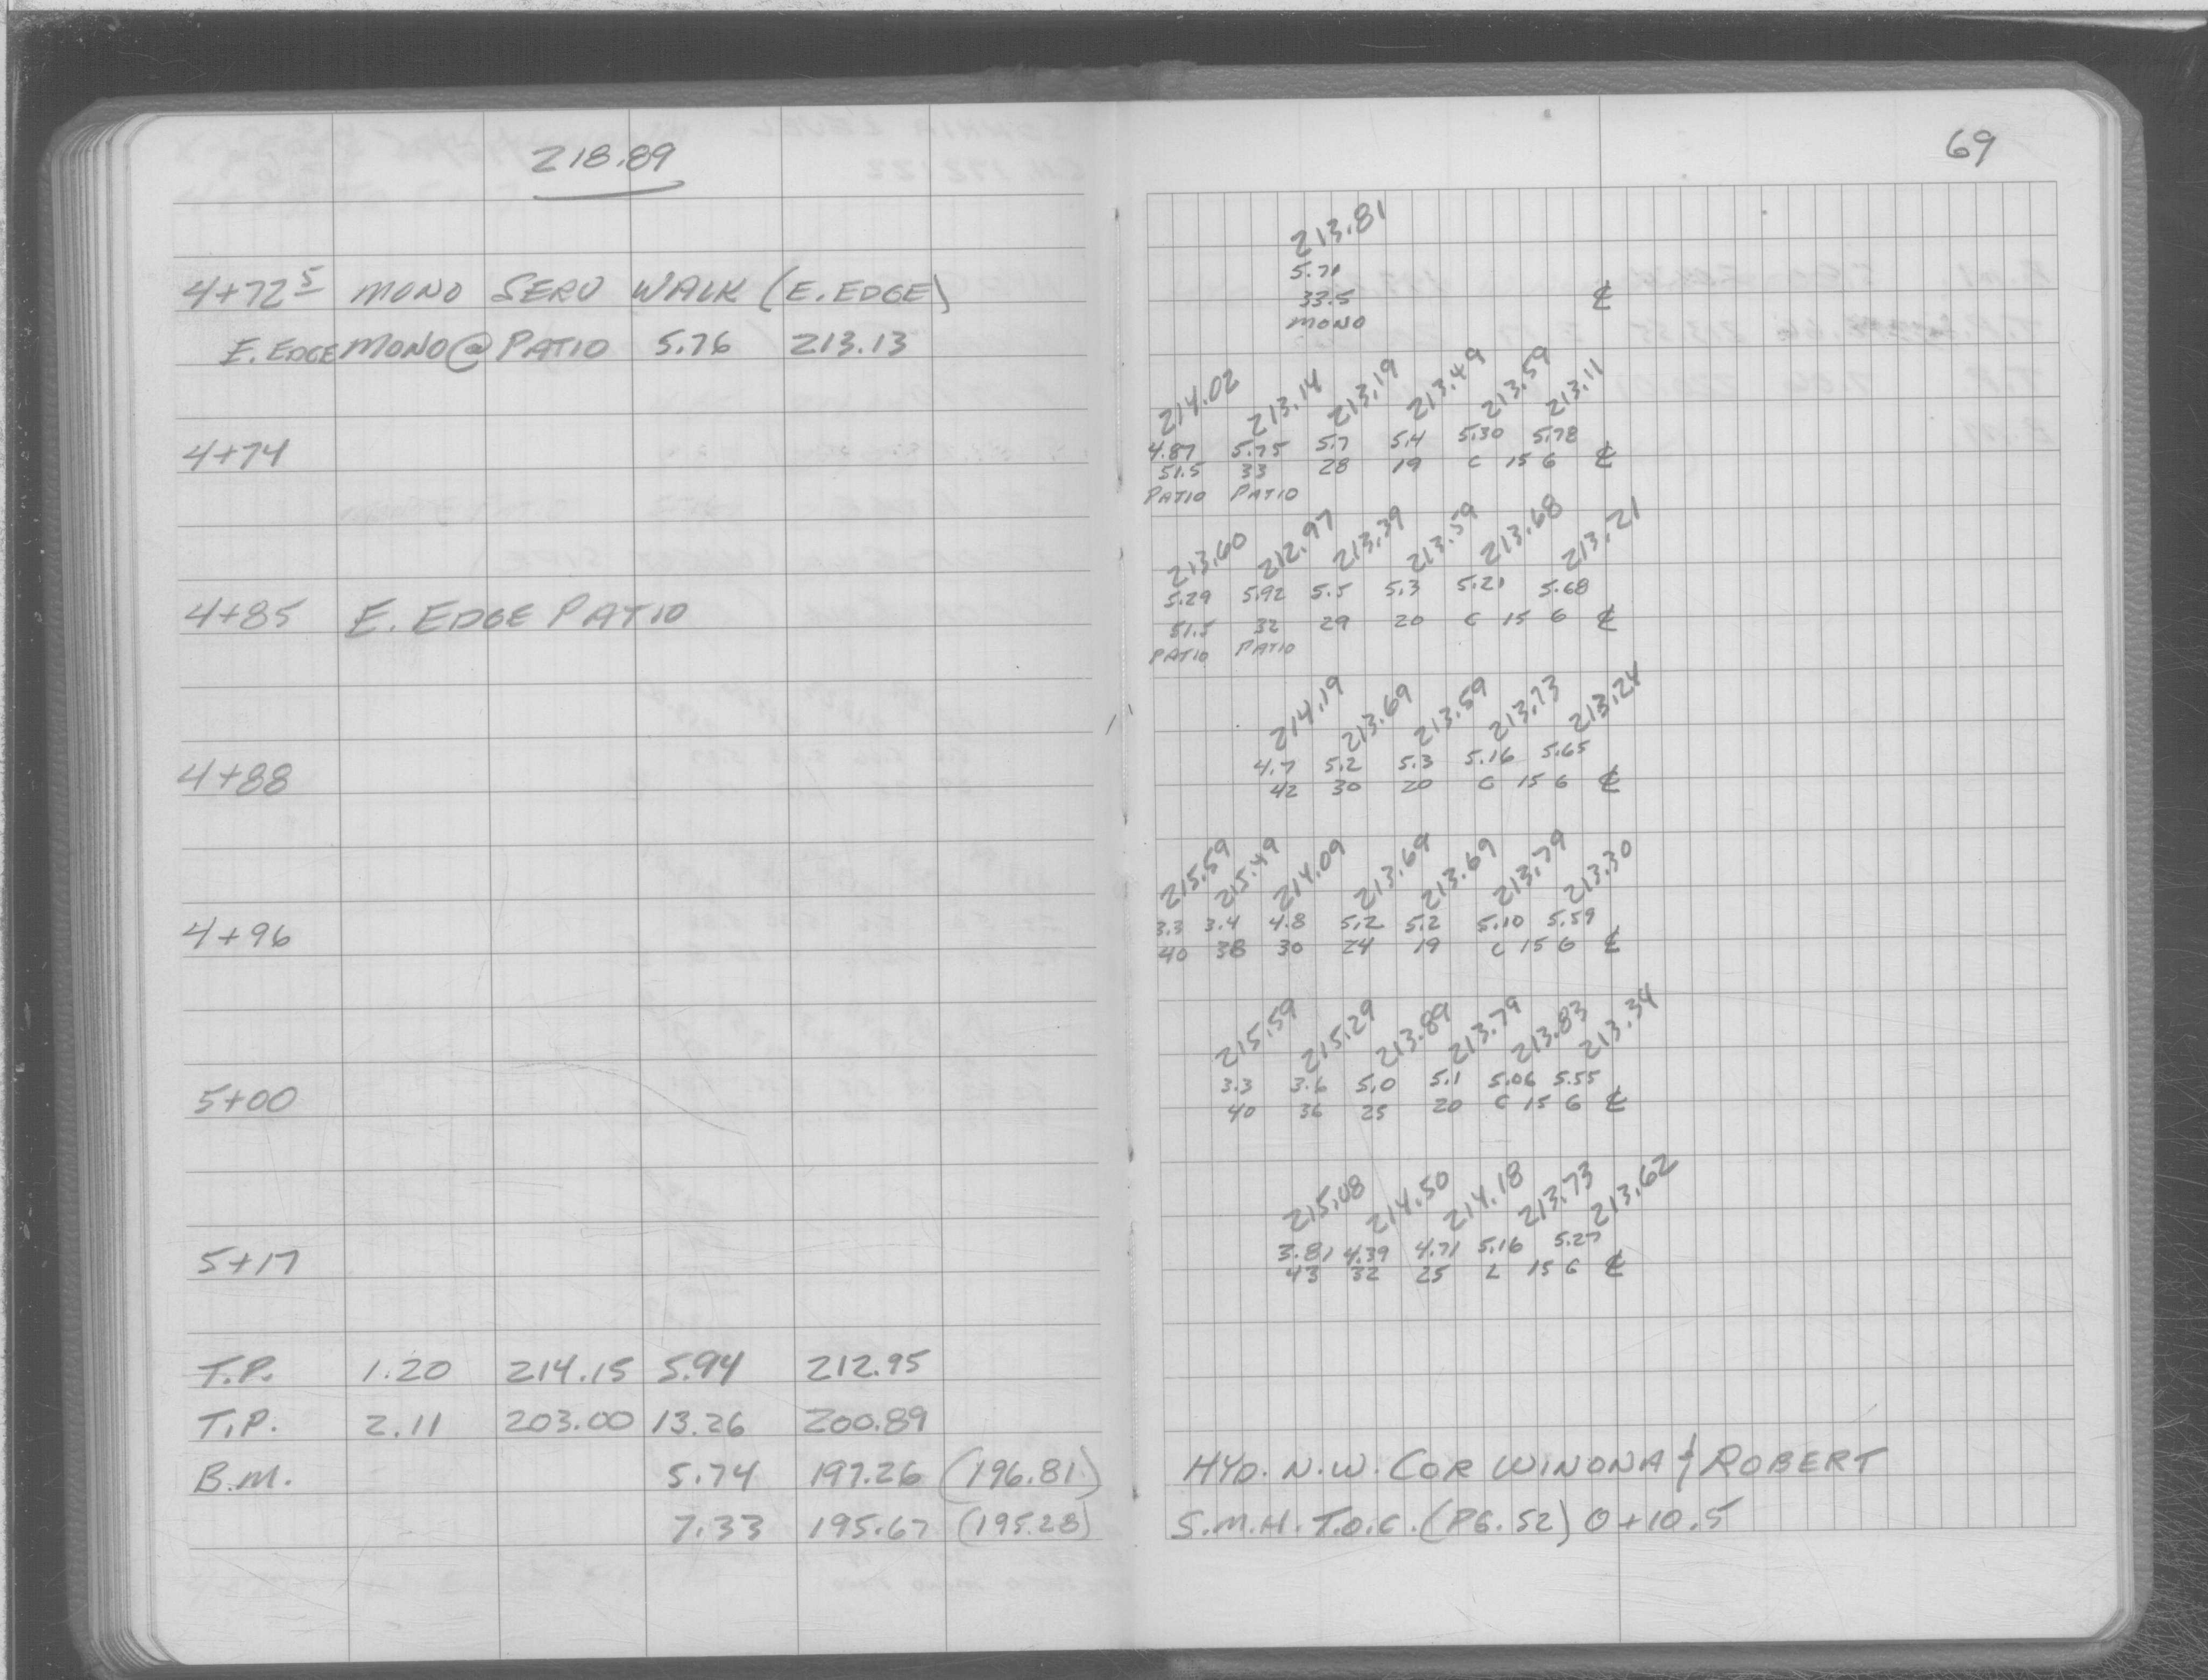 218.89
4+72⁵ MONO SERV WALK (E. EDGE)
E. EDGE MONO @ PATIO 5.76 213.13
4+74
4+85 E. EDGE PATIO
4+88
4+96
5+00
5+17
T.P. 1.20 214.15 5.94 212.95
T.P. 2.11 203.00 13.26 200.89
B.M. 5.74 197.26 (196.81)
7.33 195.67 (195.28)
69
213.81
5.71
33.5 ℄
MONO
214.02 213.14 213.19 213.49 213.59 213.11
4.87 5.75 5.7 5.4 5.30 5.78
51.5 33 28 19 C 15 6 ℄
PATIO PATIO
213.60 212.97 213.39 213.59 213.68 213.21
5.29 5.92 5.5 5.3 5.21 5.68
51.5 32 29 20 C 15 6 ℄
PATIO PATIO
214.19 213.69 213.59 213.73 213.24
4.7 5.2 5.3 5.16 5.65
42 30 20 C 15 6 ℄
215.59 215.49 214.09 213.69 213.69 213.79 213.30
3.3 3.4 4.8 5.2 5.2 5.10 5.59
40 38 30 24 19 C 15 6 ℄
215.59 215.29 213.89 213.79 213.83 213.34
3.3 3.6 5.0 5.1 5.06 5.55
40 36 25 20 C 15 6 ℄
215.08 214.50 214.18 213.73 213.62
3.81 4.39 4.71 5.16 5.27
43 32 25 L 15 6 ℄
HYD. N.W. COR WINONA & ROBERT
S.M.H. T.O.C. (PG. 52) 0+10.5